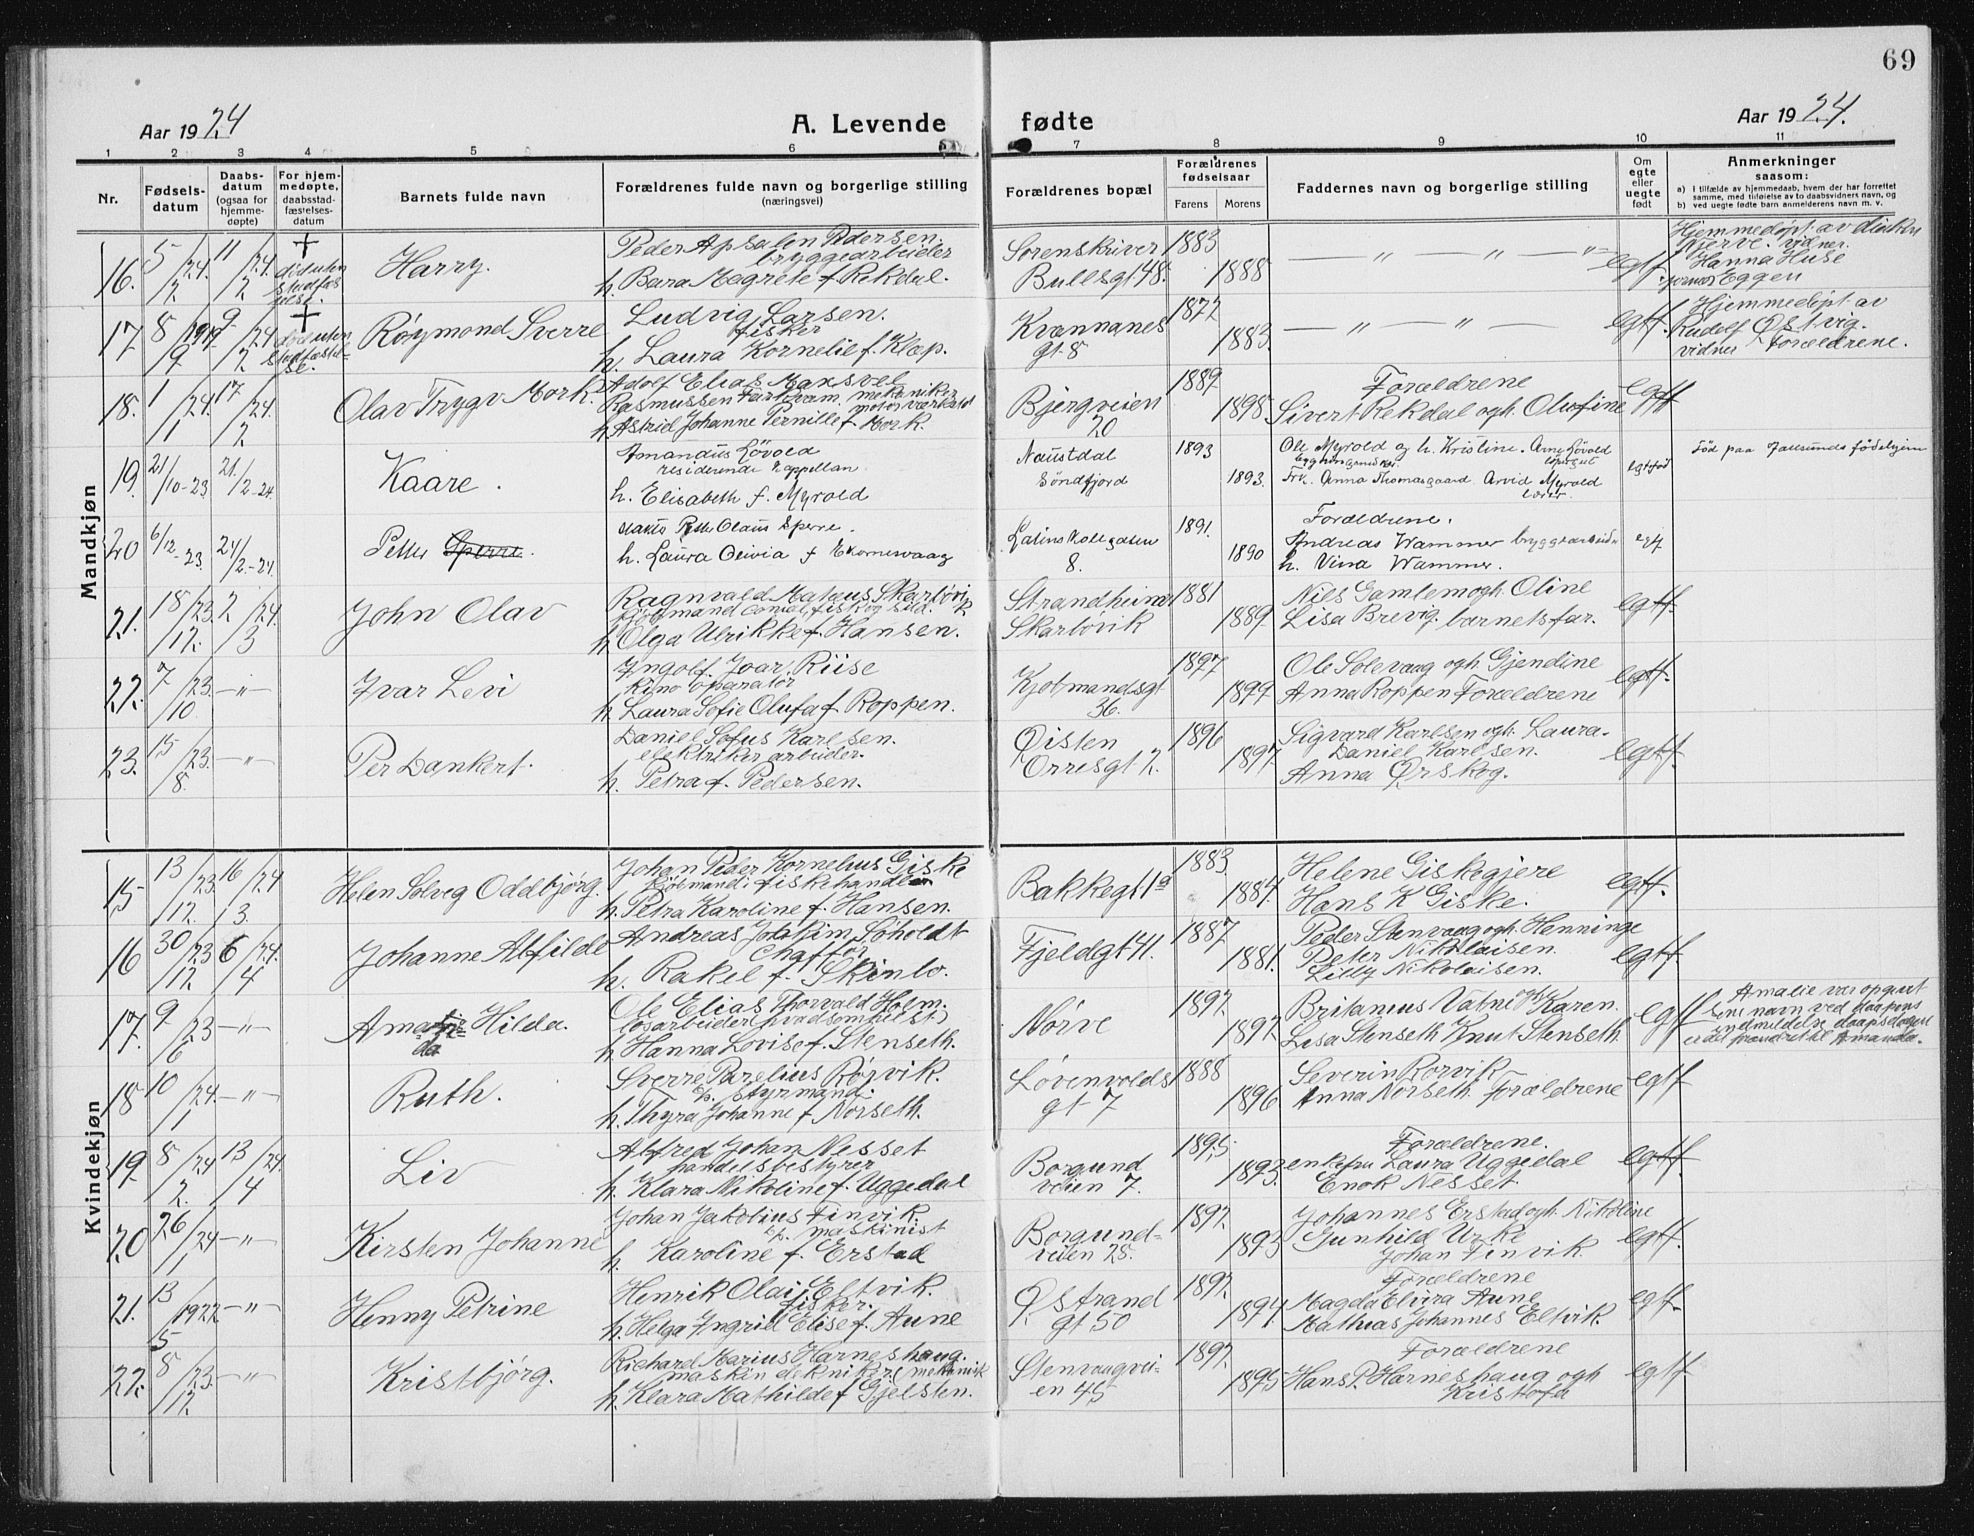 69
Aar 1924
A. Levende fødte
Aar 1924.
1 2 3 4 5 6 7 8 9 10 11
Nr.
Fødsels-datum
Daabs-datum (ogsaa for hjemme-døpte)
For hjem-medøpte, daabsstad-fæstelses-datum
Barnets fulde navn
Forældrenes fulde navn og borgerlige stilling (næringsvei)
Forældrenes bopæl
Forældrenes fødselsaar
Farens Morens
Faddernes navn og borgerlige stilling
Om egte eller uegte født
Anmerkninger saasom:
a) i tilfælde av hjemmedaab, hvem der har forrettet samme, med tilføielse av to daabsvidners navn, og
b) ved uegte fødte barn anmelderens navn m. v.
Mandkjøn
16. 5/2 24. 11/2 24. + død uten Harry. Peder Apsalon Pedersen. bryggearbeider
h. Bara Megrete f. Rekdal.
Sorenskriver Bullsgt 48. 1883 1888 — " — " — " egtf.
Hjemmedøpt av
Njerve. vidner.
Hanna Huse
Eggen
17 8/9 1919 9/2 24 + død uten Røymond Sverre Ludvig Larsen. fisker
h. Laura Kornelie f. Klep.
Kvennanes gt 8 1872 1883. — " — " — egtf.
Hjemmedøpt av
Rudolf Østvig.
vidner Forældrene.
18. 1/1 24. 17/2 24. Olav Trygv Mork. Adolf Elias Maxsvel
Rasmussen Farkvam, mekaniker
h. Astrid Johanne Pernille f. Mork.
Bjergveien 20 1889 1898 Forældrene
Sivert Rekdal ogh. Olufine egtf
19. 21/10-23 21./2-24. Kaare. Amandus Løvold
residerende kappellan.
h. Elisabeth f. Myrold
Naustdal Søndfjord 1893 1893. Ole Myrold og h. Kristine. Arne Løvold
Frk. Anna Thomasgaard Arvid Myrold
lærer.
egtfød
Fød paa Jallsunds fødehjem
20 6/12-23. 24/2-24. Petter Sperre. Petter Olaus Sperre.
h. Laura Olivia f Ekornesvaag
Latinskolegaten 8. 1891. 1890 Forældrene.
Andreas Wammer bryggearbeid.
h. Vina Wammer.
egtf
21. 18/12. 23. 2/3 24. John Olav Ragnvald Mataus Skarbøvik
kjøbmand fisk og sild.
h. Olga Ulrikke f. Hansen.
Strandheim Skarbøvik 1881 1889. Nils Gamlemogh. Oline
Lisa Brevig. barnetsfar. egtf.
22. 7/10. 23. —"— Ivar Levi Ingolf Ivar Riise
kino operatør
h. Laura Sofie Olufa f. Roppen.
Kjøbmandsgt 36. 1897 1899 Ole Solevaag ogh. Gjendine
Anna Roppen Forældrene egtf.
23. 15/8. 23. —"— Per Dankert. Daniel Sofus Karlsen.
elektriker arbeider.
h. Petra f. Pedersen.
Øisten Orresgt 2. 1896 1897 Sigvard Karlsen ogh. Laura.
Daniel Karlsen.
Anna Ørskog. egtf.
Kvindekjøn
15 13/12. 23. 16/3. 24 Helen Solveg Oddbjørg. Johan Peder Kornelius Giske
kjøbmand i fiskehandler
h. Petra Karoline f. Hansen.
Bakkegt 1a 1883. 1884. Helene Giskegjere
Hans K Giske. egtf.
16 30/12. 23 6/4 24. Johanne Alfilde Andreas Joakim Søholdt
Chaffør
h. Rakel f. Skinlo.
Fjeldgt 41. 1887 1881. Peder Stenvaag ogh. Henninge
Peter Nikolaisen.
Lilly Nikolaisen. egtf.
17. 9/6 23 —"— Amalie da Hilda. Ole Elias Thorvald Holm.
løsarbeider (hvadsomhelst)
h. Hanna Lovise f. Stenseth.
Nørve 1897. 1897. Britanius Vatne ogh. Karen.
Lisa Stenseth Knut Stenseth. egtf
Amalie var opgivt
sine navn ved daapens
indmeldelse daapsdagene
er det forandret til Amanda.
18 10/1 24. —"— Ruth. Sverre Parelius Rørvik.
styrmand.
h. Thyra Johanne f Norseth.
Løvenvolds gt 7 1888 1896 Severin Rorvik
Anna Norseth. Forældrene egtf
19. 8/2. 24 13/4 24. Liv Alfred Johan Nesset
handelsbestyrer
h. Klara Nikoline f. Uggedal
Borgund veien 7. 1895 1893. Forældrene.
enkefru Laura Uggedal
Enok Nesset egtf
20 26/1 24 —"— Kirsten Johanne Johan Jakobius Finvik
maskinist
h. Karoline f. Erstad
Borgund-veien 28. 1897. 1893 Johannes Erstad ogh. Nikoline
Gunhild Urke
Johan Finvik. egtf.
21. 13/5 1922 —"— Henny Petrine Henrik Olai Eltvik.
fisker.
h. Helga Ingrid Elise f. Aune
Østrand gt 50 1897. 1894. Forældrene
Magda Elvira Aune
Mathias Johannes Eltvik. egtf.
22. 8/12. 23. —"— Kristbjørg. Richard Marius Harneshaug.
maskindekniker (mekanik
h. Klara Mathilde f Gjelsten.
Stenvaagvei-en 45 1897. 1895 Forældrene
Hans P. Harneshaug ogh
Kristofa egtf